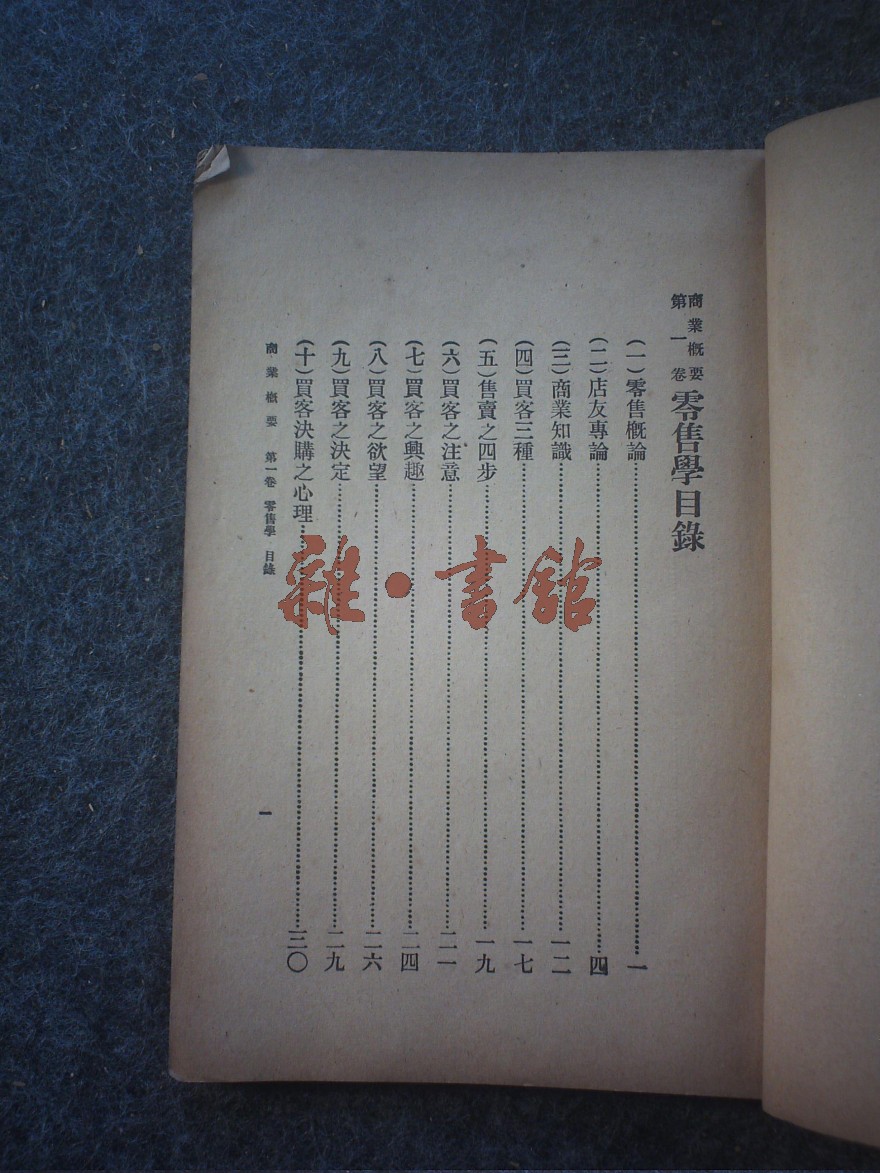 商業概要
第一卷
零售學目錄
(一)零售概論……一
(二)店友專論……四
(三)商業知識……一二
(四)買客三種……一七
(五)售賣之四步……一九
(六)買客之注意……二一
(七)買客之興趣……二四
(八)買客之欲望……二六
(九)買客之決定……二九
(十)買客決購之心理……三〇
商業概要 第一卷 零售學 目錄
一
雜·書館